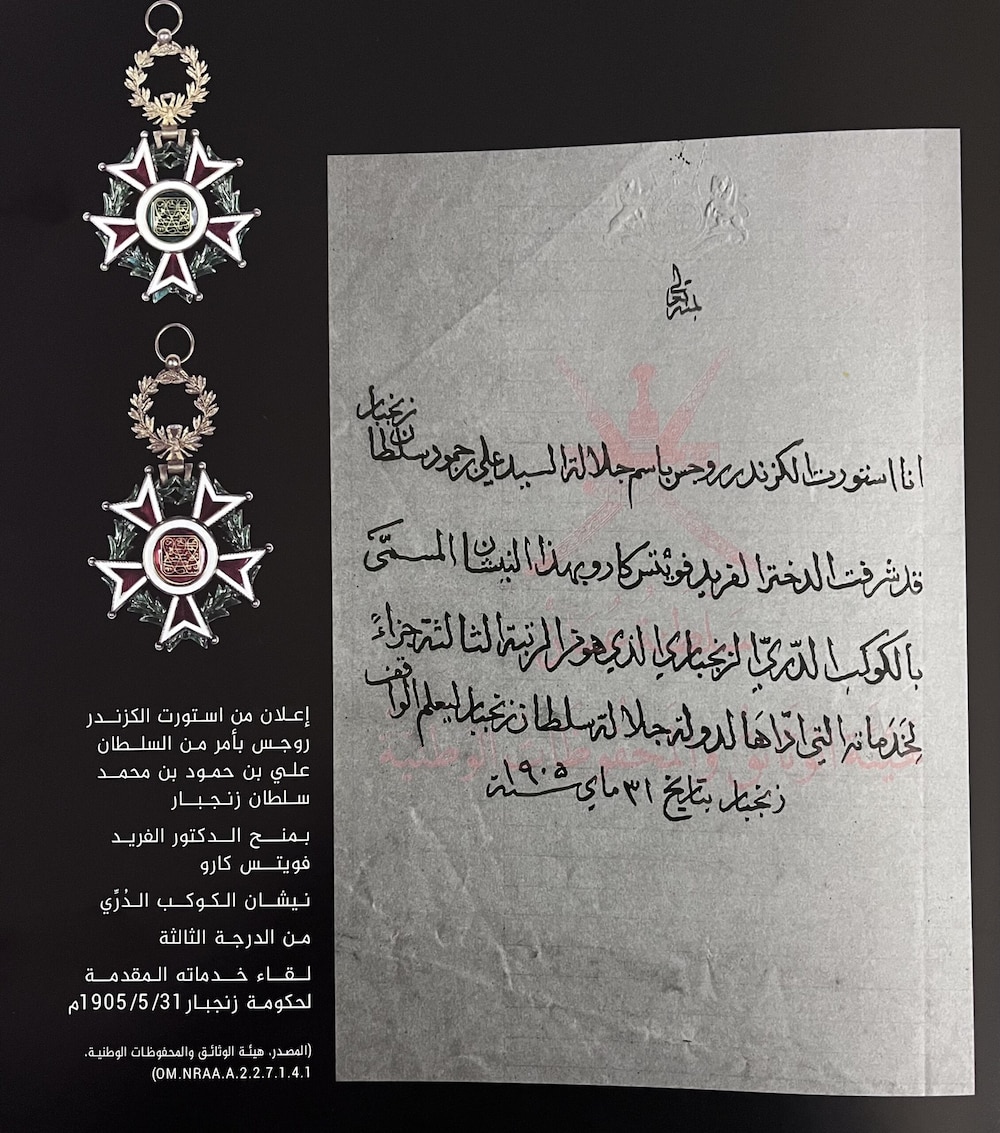 بمنه تعالى
انا استورت الكزندر روجس باسم جلالة السيد علي بن حمود سلطان زنجبار
قد شرفت الدختر الفريد فويتس كارو بهذا النيشان المسمّى
بالكوكب الدّريّ الزنجباري الذي هو من الرتبة الثالثة جزاءً
لخدماته التي ادّاها لدولة جلالة سلطان زنجبار ليعلم الواقف
زنجبار بتاريخ ٣١ ماي سنة ١٩٠٥
هيئة الوثائق والمحفوظات الوطنية
إعلان من استورت الكزندر
روجس بأمر من السلطان
علي بن حمود بن محمد
سلطان زنجبار
بمنح الدكتور الفريد
فويتس كارو
نيشان الكوكب الدُرِّي
من الدرجة الثالثة
لقاء خدماته المقدمة
لحكومة زنجبار 1905/5/31م
(المصدر، هيئة الوثائق والمحفوظات الوطنية،
OM.NRAA.A.2.2.7.1.4.1)